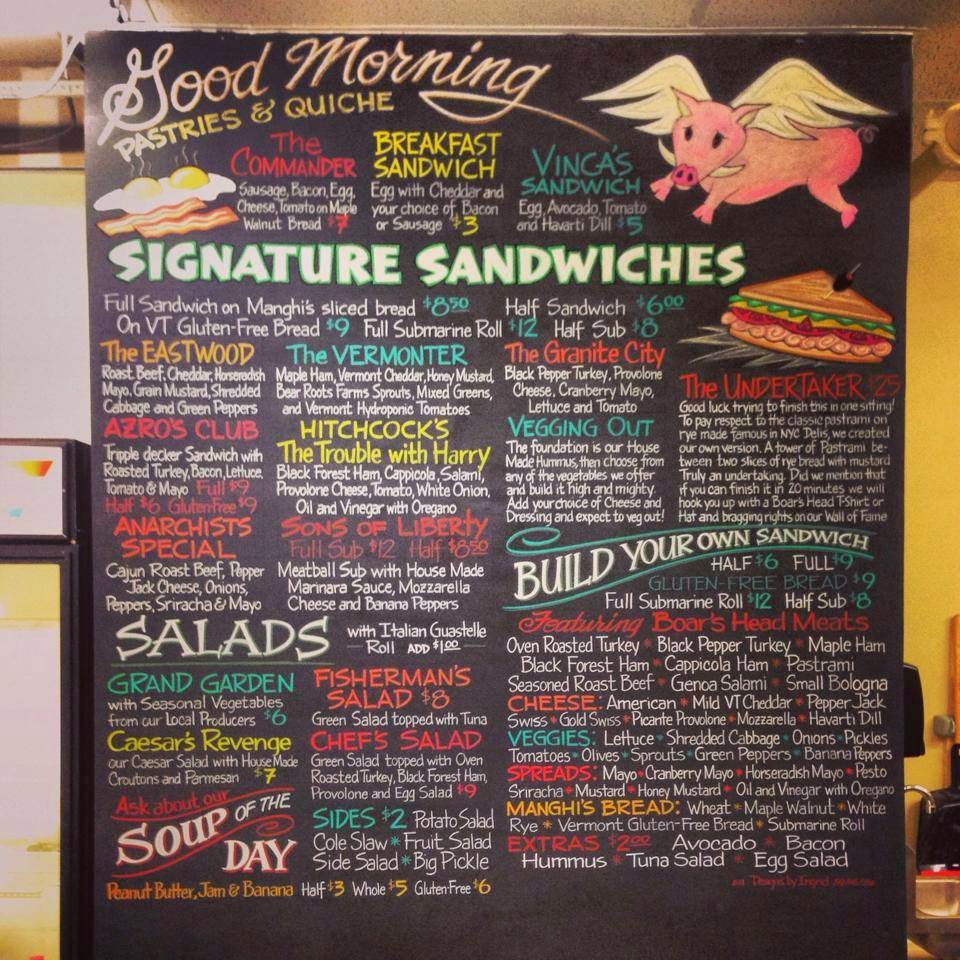 Good Morning
PASTRIES & QUICHE
The
COMMANDER
Sausage, Bacon, Egg,
Cheese, Tomato on Maple
Walnut Bread $7
BREAKFAST
SANDWICH
Egg with Cheddar and
your choice of Bacon
or Sausage $3
VINCA'S
SANDWICH
Egg, Avocado, Tomato
and Havarti Dill $5
SIGNATURE SANDWICHES
Full Sandwich on Manghi's sliced bread $8.50 Half Sandwich $6.00
On VT Gluten-Free Bread $9 Full Submarine Roll $12 Half Sub $8
The EASTWOOD
Roast Beef, Cheddar, Horseradish
Mayo, Grain Mustard, Shredded
Cabbage and Green Peppers
The VERMONTER
Maple Ham, Vermont Cheddar, Honey Mustard,
Bear Roots Farms Sprouts, Mixed Greens,
and Vermont Hydroponic Tomatoes
The Granite City
Black Pepper Turkey, Provolone
Cheese, Cranberry Mayo,
Lettuce and Tomato
The UNDERTAKER $25
Good luck trying to finish this in one sitting!
To pay respect to the classic pastrami on
rye made famous in NYC Delis, we created
our own version. A tower of Pastrami be-
tween two slices of rye bread with mustard
Truly an undertaking. Did we mention that
if you can finish it in 20 minutes we will
hook you up with a Boar's Head T-Shirt or
Hat and bragging rights on our Wall of Fame
AZRO'S CLUB
Tripple decker Sandwich with
Roasted Turkey, Bacon, Lettuce,
Tomato & Mayo Full $9
Half $6 Gluten Free $9
HITCHCOCK'S
The Trouble with Harry
Black Forest Ham, Cappicola, Salami,
Provolone Cheese, Tomato, White Onion,
Oil and Vinegar with Oregano
VEGGING OUT
The foundation is our House
Made Hummus, then choose from
any of the vegetables we offer
and build it high and mighty.
Add your choice of Cheese and
Dressing and expect to veg out!
ANARCHISTS
SPECIAL
Cajun Roast Beef, Pepper
Jack Cheese, Onions,
Peppers, Sriracha & Mayo
SONS OF LIBERTY
Full Sub $12 Half $8.50
Meatball Sub with House Made
Marinara Sauce, Mozzarella
Cheese and Banana Peppers
BUILD YOUR OWN SANDWICH
HALF $6 FULL $9
GLUTEN-FREE BREAD $9
Full Submarine Roll $12 Half Sub $8
Featuring Boar's Head Meats
Oven Roasted Turkey * Black Pepper Turkey * Maple Ham
Black Forest Ham * Cappicola Ham * Pastrami
Seasoned Roast Beef * Genoa Salami * Small Bologna
CHEESE: American * Mild VT Cheddar * Pepper Jack
Swiss * Gold Swiss * Picante Provolone * Mozzarella * Havarti Dill
VEGGIES: Lettuce * Shredded Cabbage * Onions * Pickles
Tomatoes * Olives * Sprouts * Green Peppers * Banana Peppers
SPREADS: Mayo * Cranberry Mayo * Horseradish Mayo * Pesto
Sriracha * Mustard * Honey Mustard * Oil and Vinegar with Oregano
MANGHI'S BREAD: Wheat * Maple Walnut * White
Rye * Vermont Gluten-Free Bread * Submarine Roll
EXTRAS $2.00 Avocado * Bacon
Hummus * Tuna Salad * Egg Salad
Designs by Ingrid
SALADS
with Italian Guastelle
Roll ADD $1.00
GRAND GARDEN
with Seasonal Vegetables
from our Local Producers $6
FISHERMAN'S
SALAD $8
Green Salad topped with Tuna
Caesar's Revenge
our Caesar Salad with House Made
Croutons and Parmesan $7
CHEF'S SALAD
Green Salad topped with Oven
Roasted Turkey, Black Forest Ham,
Provolone and Egg Salad $9
Ask about our
SOUP OF THE
DAY
SIDES $2 Potato Salad
Cole Slaw * Fruit Salad
Side Salad * Big Pickle
Peanut Butter, Jam & Banana Half $3 Whole $5 Gluten Free $6